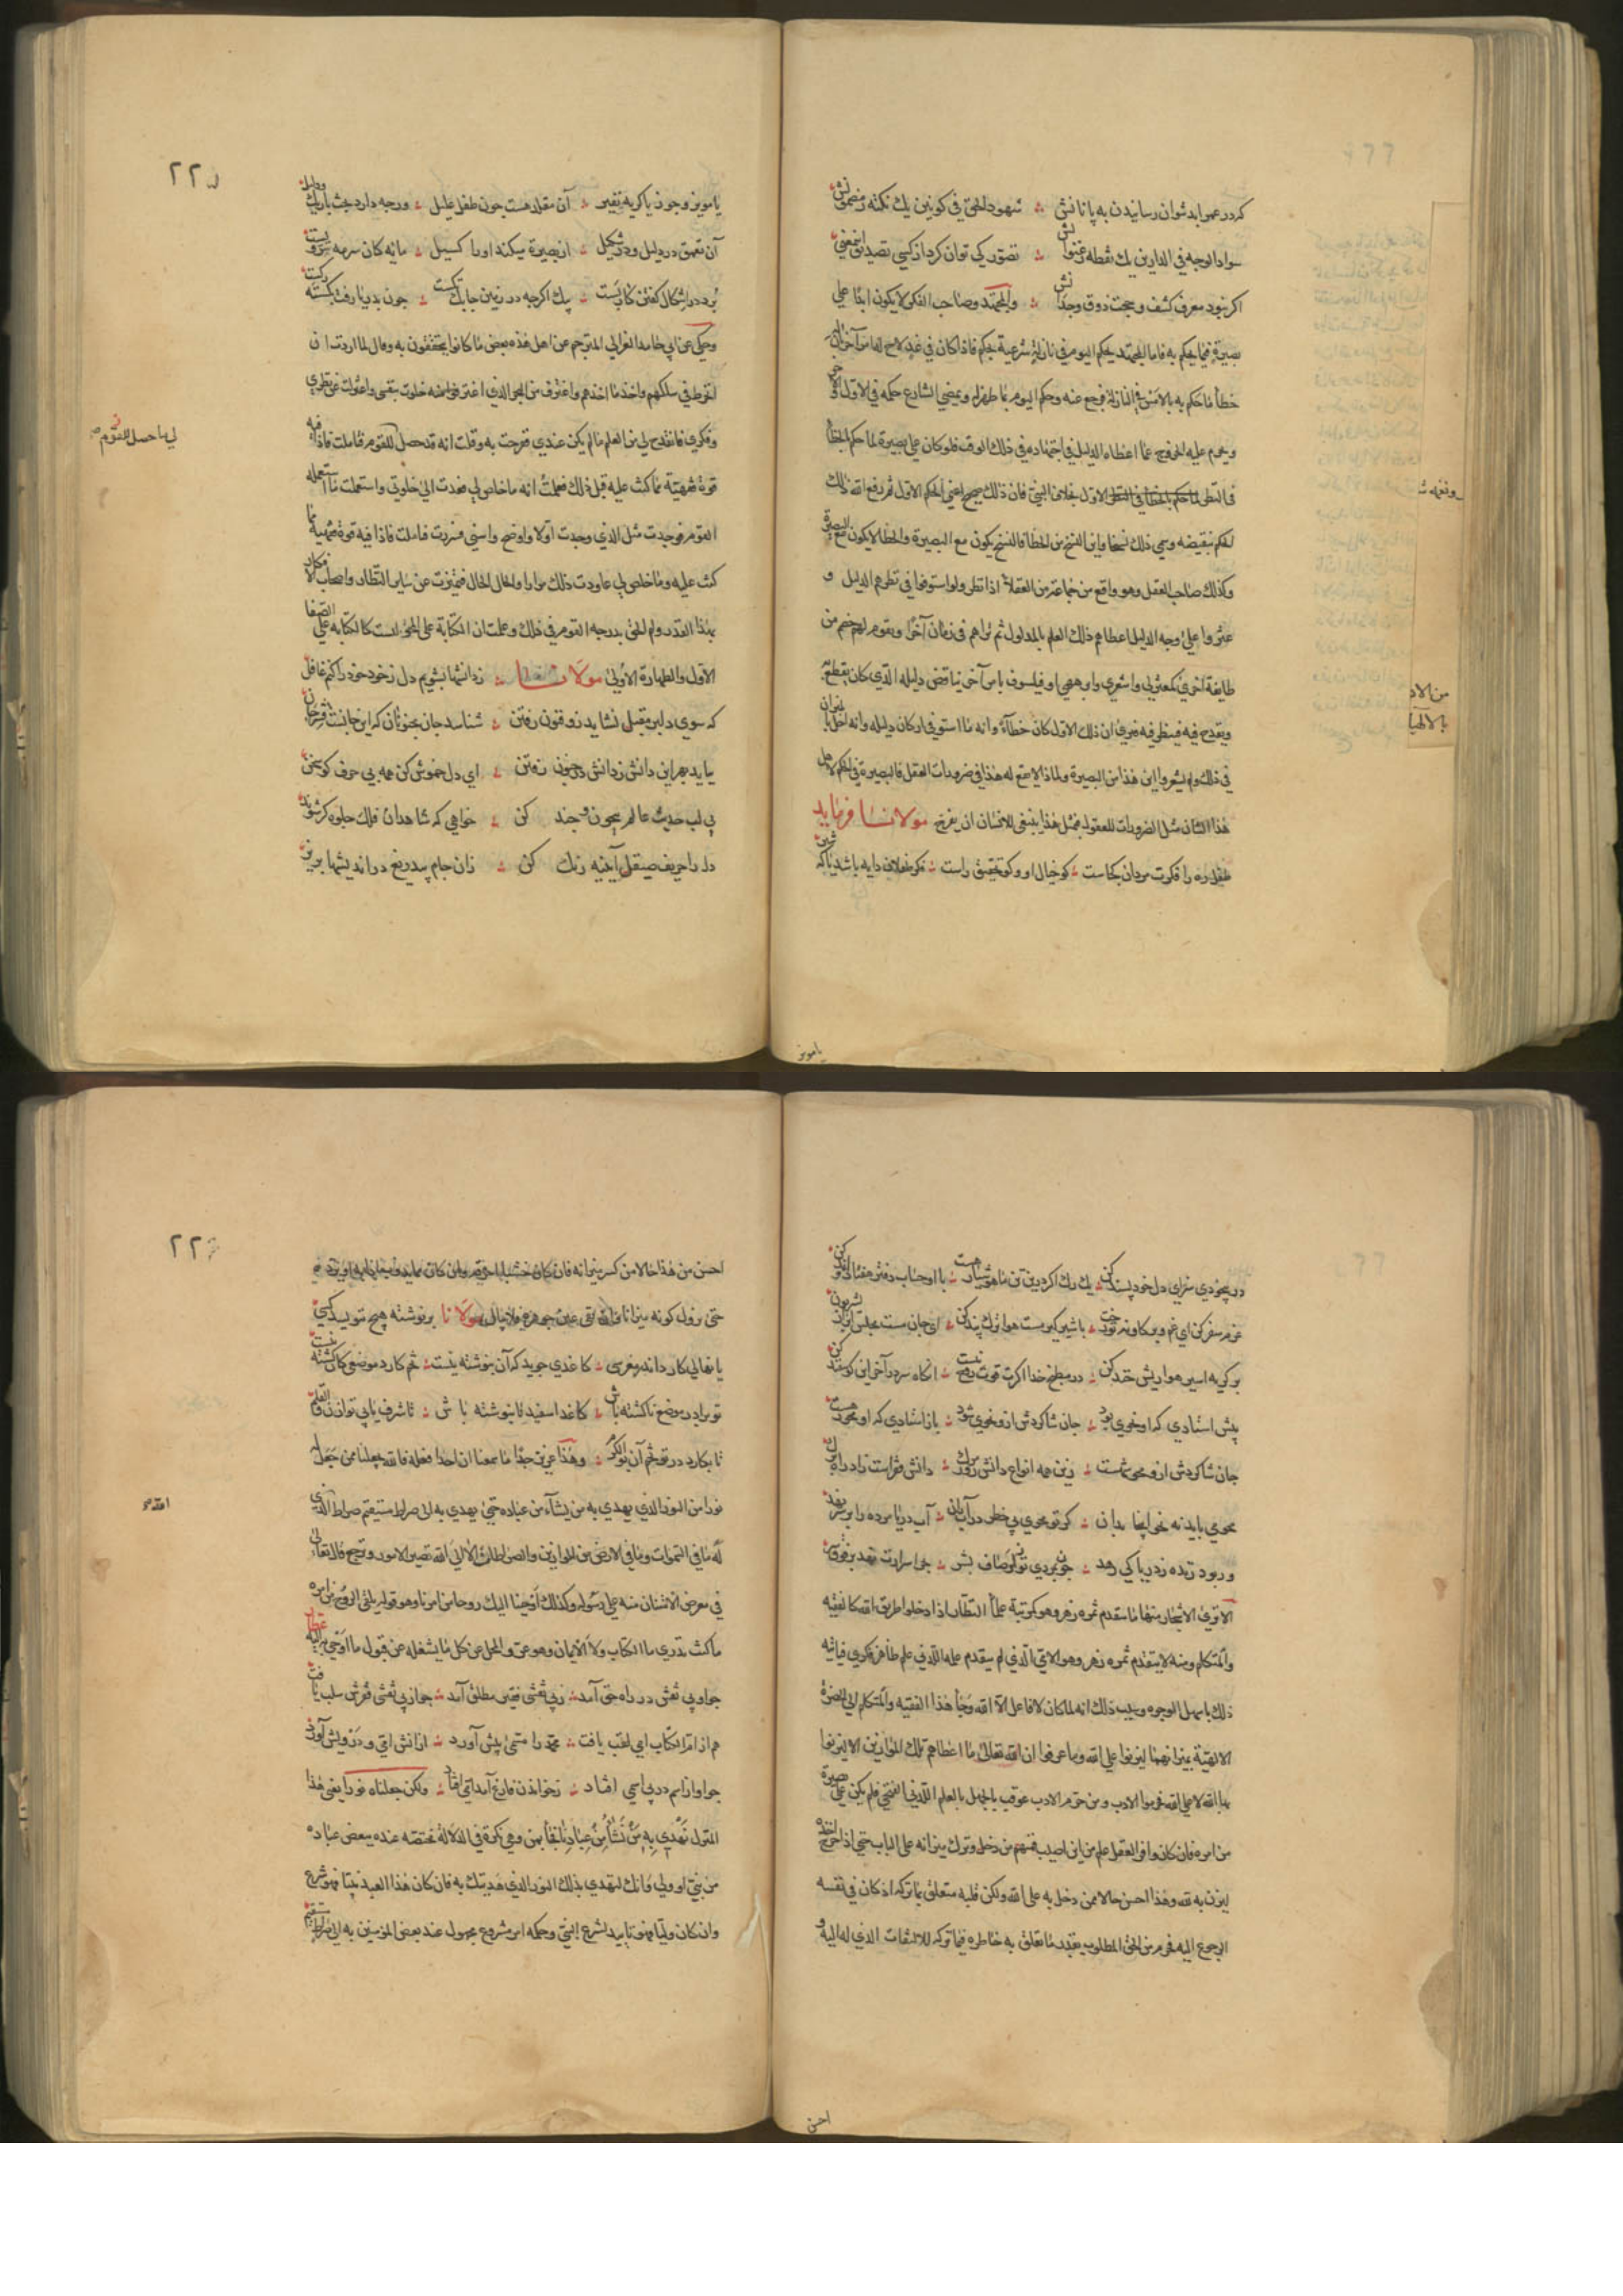 که در عمر ابد نتوان رسانیدن به پایانش ؞ شهود الحق فی کونین یک نکته ز مضمونش
سواد الوجه فی الدارین یک نقطه ز عنوانش ؞ تصور کی توان کرد از کسی تصدیق این معنی
اکر نبود معرف کشف و حجت ذوق وجدانش ؞ والمجتهد وصاحب الفکر لا یکون ابدا علی
بصیرة فیما یحکم به فاما المجتهد یحکم الیوم فی نازلة شرعیة بحکم فاذا کان فی غد لاح له امر آخر ابان
خطأ ما حکم به بالامس فی النازلة فرجع عنه وحکم الیوم بما ظهر له ویمضی الشارع حکمه فی الاول والآخر
ویحرم علیه الخروج عما اعطاه الدلیل فی اجتهاده فی ذلک الوقت فلو کان علی بصیرة لما حکم بالخطأ
فی النظر الاول بخلاف النبی فان ذلک صحیح اعنی الحکم الاول ثم رفع الله ذلک
الحکم بنقیضه وسمی ذلک نسخا واین النسخ من الخطأ فالنسخ یکون مع البصیرة والخطأ لا یکون مع البصیرة
وکذلک صاحب العقل وهو واقع من جماعة من العقلاء اذا نظروا واستوفوا فی نظرهم الدلیل و
عثروا علی وجه الدلیل اعطاهم ذلک العلم بالمدلول ثم تراهم فی زمان آخر ویقوم لهم خصم من
طایفة اخری کمعتزلی واشعری او برهمی او فیلسوف بامر آخر یناقض دلیله الذی کان یقطع به
ویقدح فیه فینظر فیه فیری ان ذلک الاول کان خطأ وانه ما استوفی ارکان دلیله وانه اخل بالمیزان
فی ذلک ولم یشعر واین هذا من البصیرة ولماذا لا یقع له هذا فی ضرورات العقل فالبصیرة فی الحکم لاهل
هذا الشان مثل الضرورات للعقول فبمثل هذا ینبغی للانسان ان یفرح مولانا فرماید
طفل ره را فکرت مردان کجاست ؞ کو خیال او و کو تحقیق راست ؞ فکر طفلان دایه باشد یا که شیر
یا مویز
من الاد
بالالهیا
۲۲۵
یا مویز و جوز یا کریه و نفیر ؞ آن مقلد هست چون طفل علیل ؞ ورچه دارد بحث باریک و دلیل
آن تعمق در دلیل و در شکیل ؞ از بصیرت میکند او را کسیل ؞ مایه کان سرمه سر ویست
برد و در اشکال کفتن کار بست ؞ پیک اکرچه در زمین چابک تکست ؞ چون بدریا رفت بکسسته رکست
وحکی عن ابی حامد الغزالی المترجم عن اهل هذه بعض ما کانوا یتحققون به وقال لما اردت ان
انخرط فی سلکهم واخذ ما اخذهم واغترف من البحر الذی اغترفوا منه خلوت بنفسی واعتزلت عن نظری
وفکری فانقدح لی من العلم ما لم یکن عندی ففرحت به وقلت انه قد حصل للقوم فتاملت فاذا فیه
قوة فقهیة مما کنت علیه قبل ذلک فعلمت انه ما خلص لی فعدت الی خلوتی واستعملت ما استعمله
القوم فوجدت مثل الذی وجدت اولا واوضح واسنی فسررت فتاملت فاذا فیه قوة فقهیة مما
کنت علیه وما خلص لی عاودت ذلک مرارا والحال الحال فتمیزت عن سایر النظار واصحاب الافکار
بهذا القدر ولم الحق بدرجة القوم فی ذلک وعلمت ان الکتابة علی المحو لیست کالکتابة علی الصفا
الاول والطهارة الاولی مولانا ؞ ز دانشها بشویم دل ز خود خود را کنم غافل
که سوی دلبر مقبل نشاید ذوفنون رفتن ؞ شناسد جان مجنونان که این جانست قشر جان
بباید بهر این دانش ز دانش در جنون رفتن ؞ ای دل خموش کن همه بی حرف کو سخن
بی لب حدیث عالم بیچون و چند کن ؞ خواهی که شاهدان فلک جلوه کر شوند
دل را حریف صیقل آیینه رنک کن ؞ زان جام بیدریغ در اندیشها بریز
لی ما حصل للقوم صح
در بیخودی سزای دل خود پسند کن ؞ یک رک اکر درین تن ما هوشیار هست ؞ با او حساب دفتر هفتاد و اند کن
عزم سفر کن ای غم و بر کاو نه تو رخت ؞ با شیر کیر مست هوا ترک پند کن ؞ ای جان مست مجلس ابرار یشربون
بر کربه اسیر هوا ریش خند کن ؞ در مطبخ خدا اکرت قوت روح نیست ؞ انکاه سر در آخر این کوسفند کن
پیش استادی که او نحوی بود ؞ جان شاکردش ازو نحوی شود ؞ باز استادی که او محو رهست
جان شاکردش ازو محو شهست ؞ زین همه انواع دانش روز مرک ؞ دانش فقرست زاد راه و برک
محو می باید نه نحو اینجا بدان ؞ کر تو محوی بی خطر در آب ران ؞ آب دریا مرده را بر سر نهد
ور بود زنده ز دریا کی رهد ؞ چون بمردی تو ز اوصاف بشر ؞ بحر اسرارت نهد بر فرق سر
الا تری الاشجار منها ما یتقدم ثمره زهر وهو کمرتبة علماء النظار اذا دخلوا طریق الله کالفقیه
والمتکلم ومنه لا یتقدم ثمره زهر وهو الامی الذی لم یتقدم علمه اللدنی علم ظاهر فکری فیاتیه
ذلک باسهل الوجوه وسبب ذلک انه لما کان لا فاعل الا الله وجاء هذا الفقیه والمتکلم الی الحضرة
الالهیة بمیزانهما لیزنوا علی الله وما عرفوا ان الله تعالی ما اعطاهم تلک الموازین الا لیزنوا
بها لله لا علی الله فحرموا الادب ومن حرم الادب عوقب بالجهل بالعلم اللدنی الفتحی فلم یکن علی بصیرة
من امره فان کان وافر العقل علم من این اصیب فمنهم من دخل وترک میزانه علی الباب حتی اذا خرج اخذه
لیزن به لله وهذا احسن حالا ممن دخل به علی الله ولکن قلبه متعلق بما ترکه اذ کان فی نفسه
الرجوع الیه فحرم من الحق المطلوب بقدر ما تعلق به خاطره فیما ترکه للالتفات الذی له الیه و
احسن
۲۲۶
احسن من هذا حالا من کسر میزانه فان کان خشبا احرقه وان کان مما یذوب اذابه او برده
حتی یزول کونه میزانا فان بقی عین جوهره فلا یبالی مولانا بر نوشته هیچ بنویسد کسی
یا نهالی کارد اندر مغرسی ؞ کاغذی جوید که آن بنوشته نیست ؞ تخم کارد موضعی کان کشته نیست
تو برادر موضع ناکشته باش ؞ کاغذ اسفید نابنوشته باش ؞ تا مشرف یابی تو از ن والقلم
تا بکارد در تو تخم آن ذو الکرم ؞ وهذا عزیز جدا ما سمعنا ان احدا فعله فالله یجعلنا ممن جعل له
نورا من النور الذی یهدی به من یشاء من عباده حتی یهدی به الی صراط مستقیم صراط الذی
له ما فی السموات وما فی الارض من الموازین والصراط الا الی الله تصیر الامور وترجع قال تعالی
فی معرض الامتنان منه علی رسوله وکذلک أوحینا الیک روحا من امرنا وهو قوله یلقی الروح من امره
ما کنت تدری ما الکتاب ولا الایمان وهو عری المحل عن کل ما یشغله عن قبول ما اوحی به الیه عطار
چو او بی نقش در راه حق آمد ؞ ز بی نقشی فقیر مطلق آمد ؞ چو از بی نقشی فقرش سلب یافت
هم از ام الکتاب ابی لقب یافت ؞ محمد را متمی پیش آورد ؞ از آنش امی و درویش آورد
چو او از اسم در بی اسمی افتاد ؞ ز خواندن فارغ آمد امی افتاد ؞ ولکن جعلناه نورا یعنی هذا
المنزل نهدی به من نشاء من عبادنا فجاء بمن وهی نکرة فی الدلالة مختصة عنده ببعض عباده
من نبی او ولی وانک لتهدی بذلک النور الذی هدیتک به فان کان هذا العبد نبیا فهو شرع
وان کان ولیا فهو تایید لشرع النبی وحکمه امر مشروع مجهول عند بعض المومنین به الی صراط مستقیم
الله